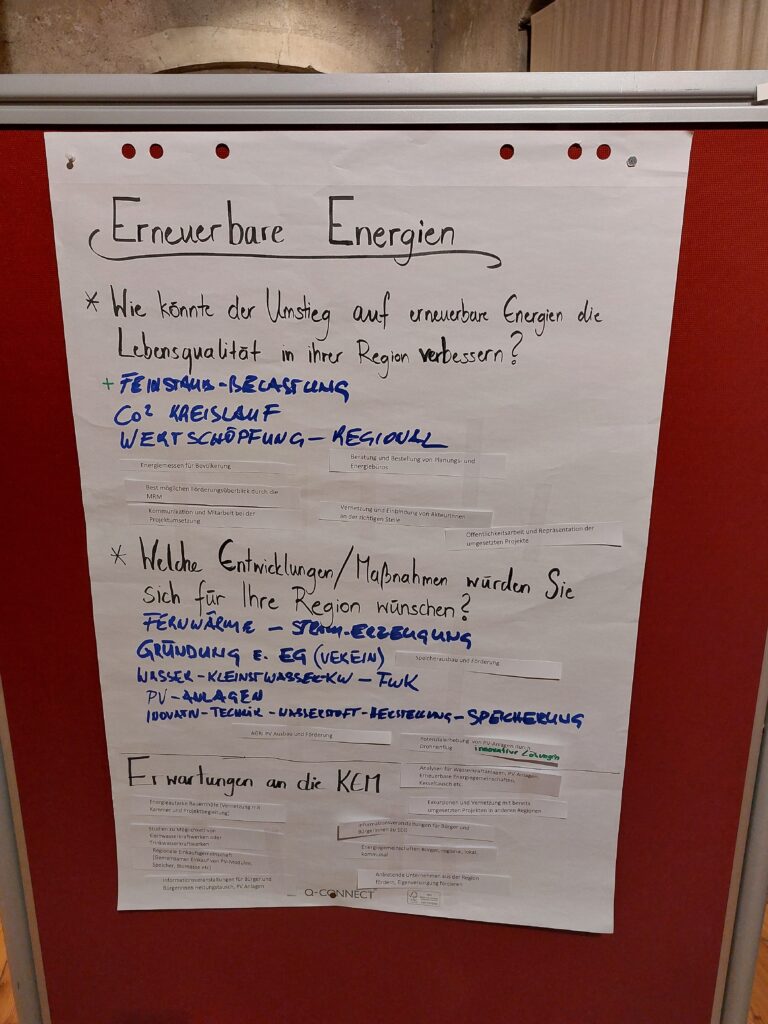 Erneuerbare Energien
* Wie könnte der Umstieg auf erneuerbare Energien die
Lebensqualität in ihrer Region verbessern?
+ FEINSTAUB-BELASTUNG
CO² KREISLAUF
WERTSCHÖPFUNG - REGIONAL
Energiemessen für Bevölkerung
Beratung und Bestellung von Planungs- und
Energiebüros
Best möglichen Förderungsüberblick durch die
MRM
Kommunikation und Mitarbeit bei der
Projektumsetzung
Vernetzung und Einbindung von AkteurInnen
an der richtigen Stelle
Öffentlichkeitsarbeit und Repräsentation der
umgesetzten Projekte
* Welche Entwicklungen/Maßnahmen würden Sie
sich für Ihre Region wünschen?
FERNWÄRME - STROM-ERZEUGUNG
GRÜNDUNG E. EG (VEREIN)
Speicherausbau und Förderung
WASSER - KLEINSTWASSER-KW - FWK
PV-ANLAGEN
INOVATIV-TECHNIK-WASSERSTOFF-HERSTELLUNG-SPEICHERUNG
AGRI PV Ausbau und Förderung
Potenzialerhebung von PV-Anlagen durch
Drohnenflug
innovative Lösungen
Erwartungen an die KEM
Analysen für Wasserkraftanlagen, PV Anlagen,
Erneuerbare Energiegemeinschaften,
Kesseltausch etc.
Energieautarke Bauernhöfe (Vernetzung mit
Kammer und Projektbegleitung)
Exkursionen und Vernetzung mit bereits
umgesetzten Projekten in anderen Regionen
Informationsveranstaltungen für Bürger und
Bürgerinnen zu
Studien zu Möglichkeit von
Kleinwasserkraftwerken oder
Trinkwasserkraftwerken
Energiegemeinschaften Bürger, regional, lokal,
kommunal
Regionale Einkaufsgemeinschaft
(Gemeinsamer Einkauf von PV-Modulen,
Speicher, Biomasse etc)
Informationsveranstaltungen für Bürger und
Bürgerinnen Heizungstausch, PV Anlagen
Anbietende Unternehmen aus der Region
fördern, Eigenversorgung forcieren
Q-CONNECT